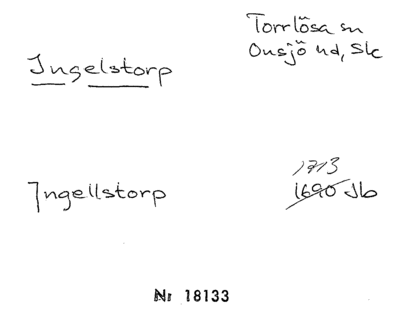 Torrlösa sn
Onsjö hd, Sk
Ingelstorp
1713
Ingellstorp 1690 Jb
Nr 18133